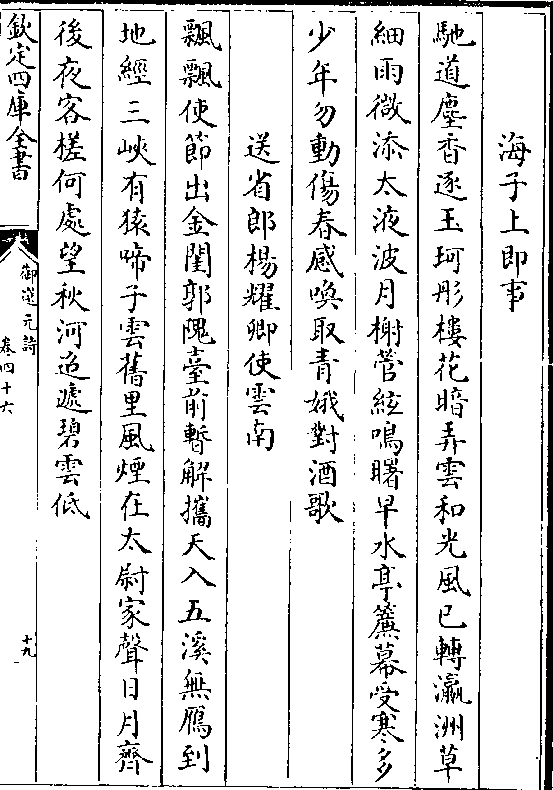 海子上即事
馳道塵香逐玉珂彤樓花暗弄雲和光風已轉瀛洲草
細雨微添太液波月榭管絃鳴曙早水亭簾幕受寒多
少年勿動傷春感喚取青娥對酒歌
送省郎楊耀卿使雲南
飄飄使節出金閨郭隗臺前暫解攜天入五溪無鴈到
地經三峽有猿啼子雲舊里風煙在太尉家聲日月齊
後夜客槎何處望秋河迢遞碧雲低
欽定四庫全書
御選元詩
卷四十六
十九